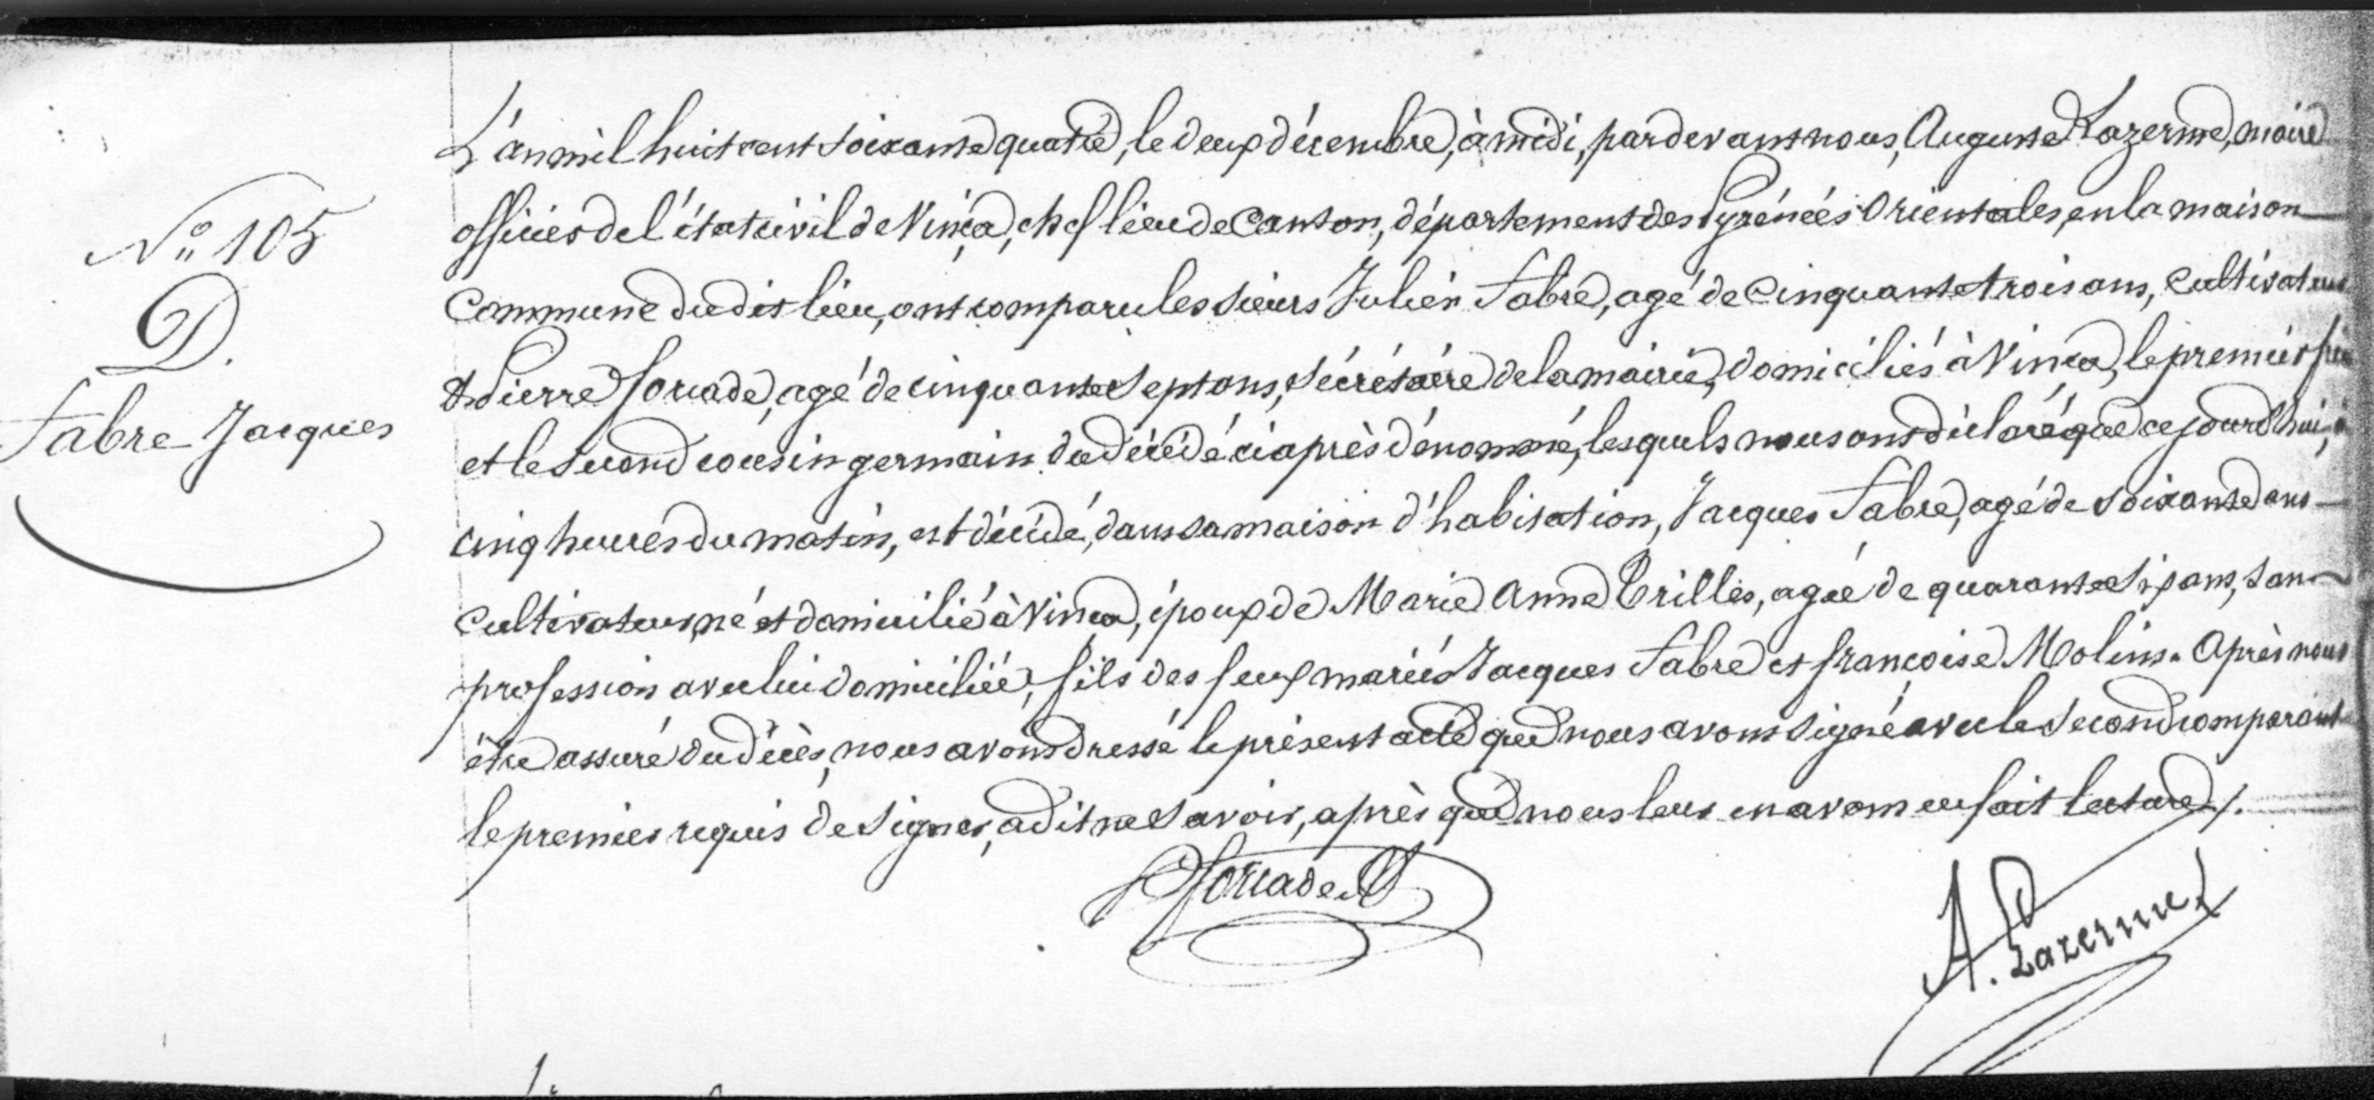 N° 105
D.
Fabre Jacques
L'an mil huit cent soixante quatre, le deux décembre, à midi, pardevant nous, Auguste Lazerme, maire
officier de l'état civil de Vinça, chef lieu de Canton, département des Pyrénées Orientales, en la maison
Commune dudit lieu, ont comparu les sieurs Julien Fabre, agé de Cinquante trois ans, cultivateur
& Pierre Forcade, agé de cinquante sept ans, sécrétaire de la mairie, domiciliés à Vinça, le premier
et le second cousin germain du décédé ci après dénommé, lesquels nous ont déclaré que ce jourd'hui, à
cinq heures du matin, est décédé, dans sa maison d'habitation, Jacques Fabre, agé de soixante ans
cultivateur, né et domicilié à Vinça, époux de Marie Anne Trilles, agée de quarante six ans, sans
profession avec lui domiciliée, fils des feux mariés Jacques Fabre et françoise Molins. Après nous
être assuré du décès, nous avons dressé le présent acte que nous avons signé avec le second comparant
le premier requis de signer, a dit ne savoir, après que nous leur en avons eu fait lecture /.
Forcade
A. Lazerme